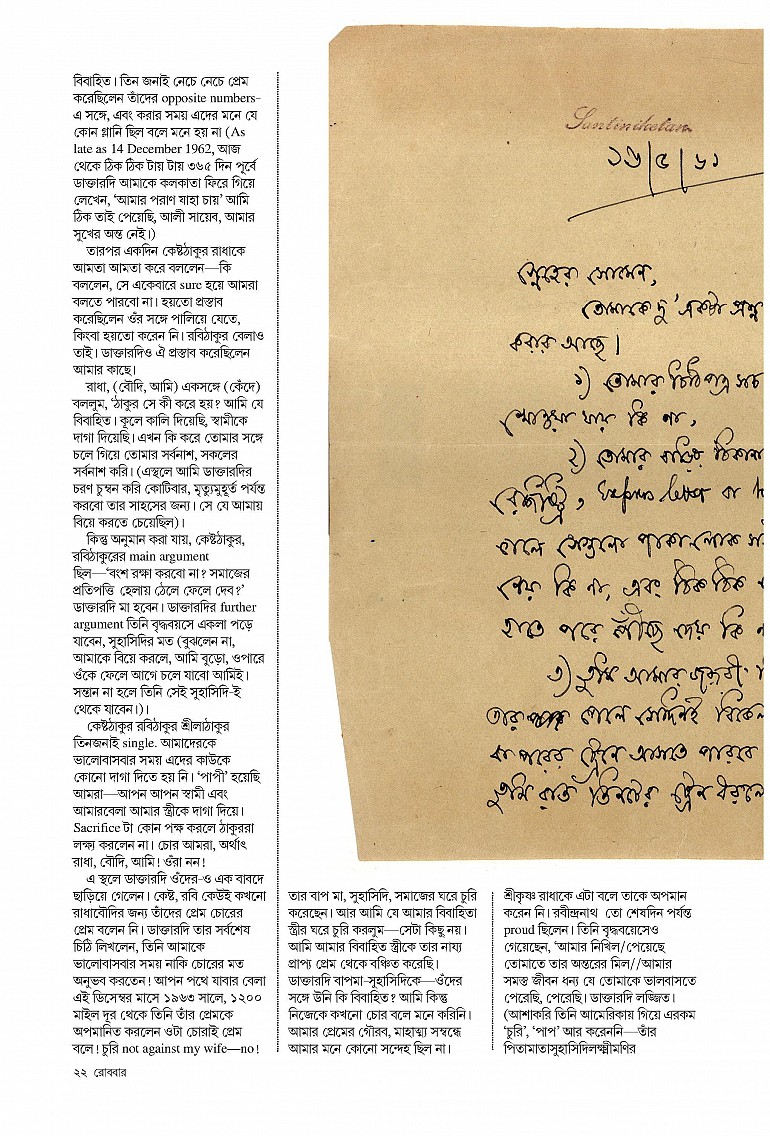 বিবাহিত। তিন জনাই নেচে নেচে প্রেম
করেছিলেন তাঁদের opposite numbers-
এ সঙ্গে, এবং করার সময় এদের মনে যে
কোন গ্লানি ছিল বলে মনে হয় না (As
late as 14 December 1962, আজ
থেকে ঠিক ঠিক টায় টায় ৩৬৫ দিন পূর্বে
ডাক্তারদি আমাকে কলকাতা ফিরে গিয়ে
লেখেন, ‘আমার পরাণ যাহা চায়’ আমি
ঠিক তাই পেয়েছি, আলী সায়েব, আমার
সুখের অন্ত নেই।)
তারপর একদিন কেষ্টঠাকুর রাধাকে
আমতা আমতা করে বললেন—কি
বললেন, সে একেবারে sure হয়ে আমরা
বলতে পারবো না। হয়তো প্রস্তাব
করেছিলেন ওঁর সঙ্গে পালিয়ে যেতে,
কিংবা হয়তো করেন নি। রবিঠাকুর বেলাও
তাই। ডাক্তারদিও ঐ প্রস্তাব করেছিলেন
আমার কাছে।
রাধা, (বৌদি, আমি) একসঙ্গে (কেঁদে)
বললুম, ‘ঠাকুর সে কী করে হয়? আমি যে
বিবাহিত। কুলে কালি দিয়েছি, স্বামীকে
দাগা দিয়েছি। এখন কি করে তোমার সঙ্গে
চলে গিয়ে তোমার সর্বনাশ, সকলের
সর্বনাশ করি। (এস্থলে আমি ডাক্তারদির
চরণ চুম্বন করি কোটিবার, মৃত্যুমুহূর্ত পর্যন্ত
করবো তার সাহসের জন্য। সে যে আমায়
বিয়ে করতে চেয়েছিল)।
কিন্তু অনুমান করা যায়, কেষ্টঠাকুর,
রবিঠাকুরের main argument
ছিল—‘বংশ রক্ষা করবো না? সমাজের
প্রতিপত্তি হেলায় ঠেলে ফেলে দেব?’
ডাক্তারদি মা হবেন। ডাক্তারদির further
argument তিনি বৃদ্ধবয়সে একলা পড়ে
যাবেন, সুহাসিদির মত (বুঝলেন না,
আমাকে বিয়ে করলে, আমি বুড়ো, ওপারে
ওঁকে ফেলে আগে চলে যাবো আমিই।
সন্তান না হলে তিনি সেই সুহাসিদি-ই
থেকে যাবেন।)।
কেষ্টঠাকুর রবিঠাকুর শ্রীলাঠাকুর
তিনজনাই single. আমাদেরকে
ভালোবাসবার সময় এদের কাউকে
কোনো দাগা দিতে হয় নি। ‘পাপী’ হয়েছি
আমরা—আপন আপন স্বামী এবং
আমারবেলা আমার স্ত্রীকে দাগা দিয়ে।
Sacrifice টা কোন পক্ষ করলে ঠাকুররা
লক্ষ্য করলেন না। চোর আমরা, অর্থাৎ
রাধা, বৌদি, আমি! ওঁরা নন!
এ স্থলে ডাক্তারদি ওঁদের-ও এক বাবদে
ছাড়িয়ে গেলেন। কেষ্ট, রবি কেউই কখনো
রাধাবৌদির জন্য তাঁদের প্রেম চোরের
প্রেম বলেন নি। ডাক্তারদি তার সর্বশেষ
চিঠি লিখলেন, তিনি আমাকে
ভালোবাসবার সময় নাকি চোরের মত
অনুভব করতেন! আপন পথে যাবার বেলা
এই ডিসেম্বর মাসে ১৯৬৩ সালে, ১২০০
মাইল দূর থেকে তিনি তাঁর প্রেমকে
অপমানিত করলেন ওটা চোরাই প্রেম
বলে! চুরি not against my wife—no!
তার বাপ মা, সুহাসিদি, সমাজের ঘরে চুরি
করেছেন। আর আমি যে আমার বিবাহিতা
স্ত্রীর ঘরে চুরি করলুম—সেটা কিছু নয়।
আমি আমার বিবাহিত স্ত্রীকে তার নায্য
প্রাপ্য প্রেম থেকে বঞ্চিত করেছি।
ডাক্তারদি বাপমা-সুহাসিদিকে—ওঁদের
সঙ্গে উনি কি বিবাহিত? আমি কিন্তু
নিজেকে কখনো চোর বলে মনে করিনি।
আমার প্রেমের গৌরব, মাহাত্ম্য সম্বন্ধে
আমার মনে কোনো সন্দেহ ছিল না।
শ্রীকৃষ্ণ রাধাকে এটা বলে তাকে অপমান
করেন নি। রবীন্দ্রনাথ তো শেষদিন পর্যন্ত
proud ছিলেন। তিনি বৃদ্ধবয়েসেও
গেয়েছেন, ‘আমার নিখিল/পেয়েছে
তোমাতে তার অন্তরের মিল//আমার
সমস্ত জীবন ধন্য যে তোমাকে ভালবাসতে
পেরেছি, পেরেছি। ডাক্তারদি লজ্জিত।
(আশাকরি তিনি আমেরিকায় গিয়ে এরকম
‘চুরি’, ‘পাপ’ আর করেননি—তাঁর
পিতামাতাসুহাসিদিলক্ষ্মীমণির
Santiniketan
১৬/৫/৬১
স্নেহের সোমেন,
তোমাকে দু’একটা প্রশ্ন
করার আছে।
১) তোমার চিঠিপত্র সব
খোওয়া যায় কি না,
২) তোমার বাড়ির ঠিকানা
রেজিস্ট্রি, Express letter বা
কালে সেগুলো পাকা লোক
নেয় কি না, এবং ঠিক ঠিক
হাতে পরে পৌঁছে দেয় কি
৩) তুমি আমার জরুরী
তার পেলে সেদিনই বিকেল
বা পরের ট্রেনে আসতে পারবে
তুমি রাত তিনটের ট্রেন ধরলে
২২ রোববার